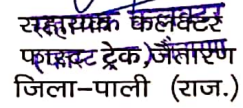 सहायक कलक्टर
(फास्ट ट्रेक) जैतारण
जिला-पाली (राज.)